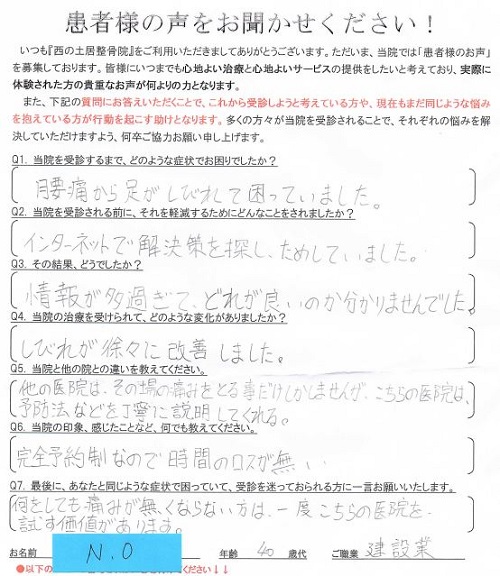 患者様の声をお聞かせください！
いつも『西の土居整骨院』をご利用いただきましてありがとうございます。ただいま、当院では「患者様のお声」
を募集しております。皆様にいつまでも心地よい治療と心地よいサービスの提供をしたいと考えており、実際に
体験された方の貴重なお声が何よりの力となります。
また、下記の質問にお答えいただくことで、これから受診しようと考えている方や、現在もまだ同じような悩み
を抱えている方が行動を起こす助けとなります。多くの方々が当院を受診されることで、それぞれの悩みを解
決していただけますよう、何卒ご協力お願い申し上げます。
Q1. 当院を受診するまで、どのような症状でお困りでしたか？
腰痛から足がしびれて困っていました。
Q2. 当院を受診される前に、それを軽減するためにどんなことをされましたか？
インターネットで解決策を探し、ためしていました。
Q3. その結果、どうでしたか？
情報が多過ぎて、どれが良いのか分かりませんでした。
Q4. 当院の治療を受けられて、どのような変化がありましたか？
しびれが徐々に改善しました。
Q5. 当院と他の院との違いを教えてください。
他の医院は、その場の痛みをとる事だけしかしませんが、こちらの医院は、
予防法などを丁寧に説明してくれる。
Q6. 当院の印象、感じたことなど、何でも教えてください。
完全予約制なので時間のロスが無い
Q7. 最後に、あなたと同じような症状で困っていて、受診を迷っておられる方に一言お願いいたします。
何をしても痛みが無くならない方は、一度こちらの医院を
試す価値があります。
お名前 N.O 年齢 40 歳代 ご職業 建設業
●以下の ください↓↓